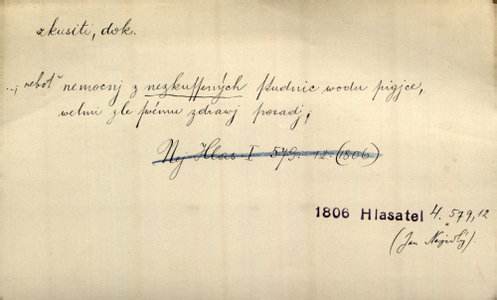 zkusiti, dok.
..., neboť nemocnj z nezkussených studnic wodu pigjce,
welmi zle swému zdrawj poradj;
Nej Hlas. I 579. 12. (1806)
1806 Hlasatel 4. 579, 12
(Jan Nejedlý).